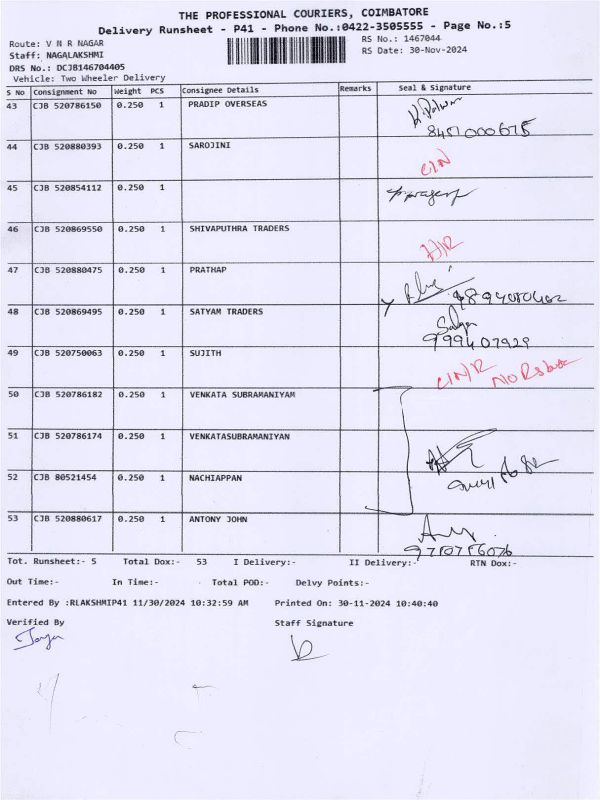 THE PROFESSIONAL COURIERS, COIMBATORE
Delivery Runsheet - P41 - Phone No.:0422-3505555 - Page No.:5
Route: V N R NAGAR
RS No.: 1467044
Staff: NAGALAKSHMI
RS Date: 30-Nov-2024
DRS No.: DCJB146704405
Vehicle: Two Wheeler Delivery
S No Consignment No Weight PCS Consignee Details Remarks Seal & Signature
43 CJB 520786150 0.250 1 PRADIP OVERSEAS
44 CJB 520880393 0.250 1 SAROJINI
C/N
45 CJB 520854112 0.250 1
46 CJB 520869550 0.250 1 SHIVAPUTHRA TRADERS
47 CJB 520880475 0.250 1 PRATHAP
48 CJB 520869495 0.250 1 SATYAM TRADERS
49 CJB 520750063 0.250 1 SUJITH
50 CJB 520786182 0.250 1 VENKATA SUBRAMANIYAM
51 CJB 520786174 0.250 1 VENKATASUBRAMANIYAN
52 CJB 80521454 0.250 1 NACHIAPPAN
53 CJB 520880617 0.250 1 ANTONY JOHN
Tot. Runsheet:- 5 Total Dox:- 53 I Delivery:- II Delivery:- RTN Dox:-
Out Time:- In Time:- Total POD:- Delvy Points:-
Entered By :RLAKSHMIP41 11/30/2024 10:32:59 AM Printed On: 30-11-2024 10:40:40
Verified By Staff Signature